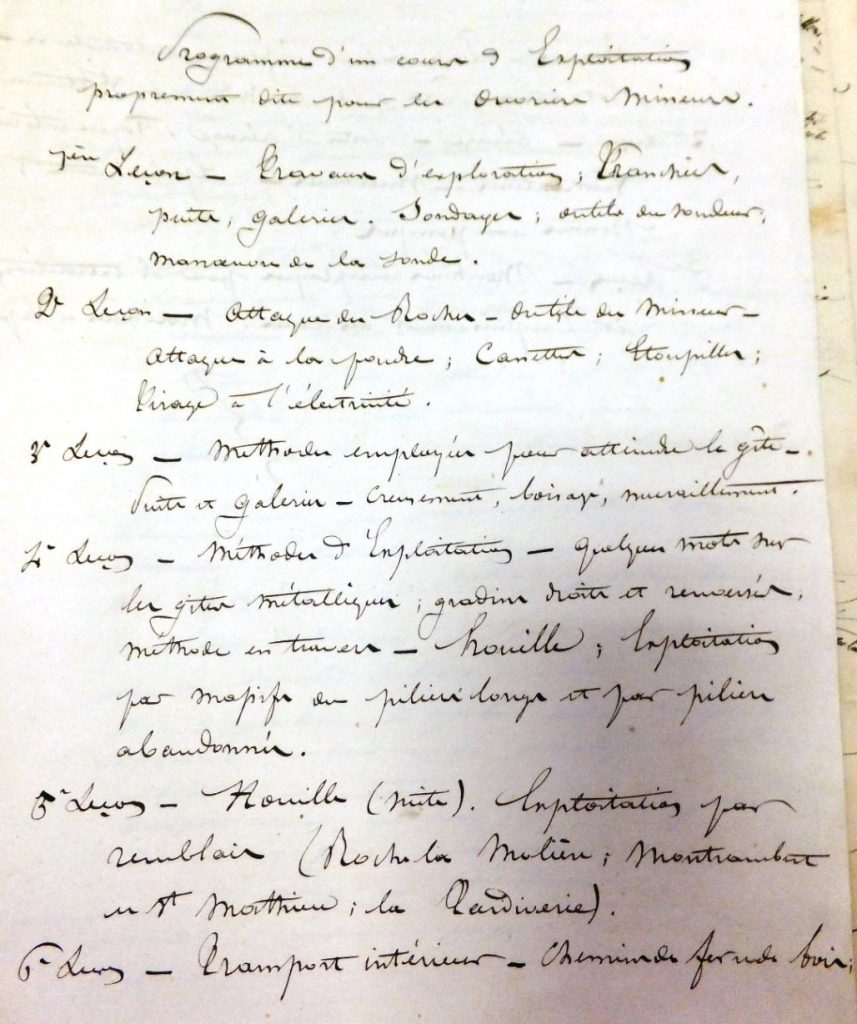 Programme d'un cours d'Exploitation
proprement dite pour les ouvriers Mineurs.
1ère Leçon — Travaux d'exploration; Tranchées,
puits, galeries. Sondages; outils du sondeur;
manœuvre de la sonde.
2e Leçon — Attaque du Rocher — Outils du Mineur —
Attaque à la poudre; Canettes; Etoupilles;
Tirage à l'électricité.
3e Leçon — Méthodes employées pour atteindre le gîte —
Puits et Galeries — Creusement, boisage, muraillement.
4e Leçon — Méthodes d'Exploitation — quelques mots sur
les gîtes métalliques; gradins droits et renversés;
méthode en travers — houille; Exploitation
par massifs ou piliers longs et par piliers
abandonnés.
5e Leçon — Houille (suite). Exploitation par
remblais (Roche la Molière; Montrambert
et St Mathieu; la Tardiverie).
6e Leçon — Transport intérieur — Chemins de fer et de bois;